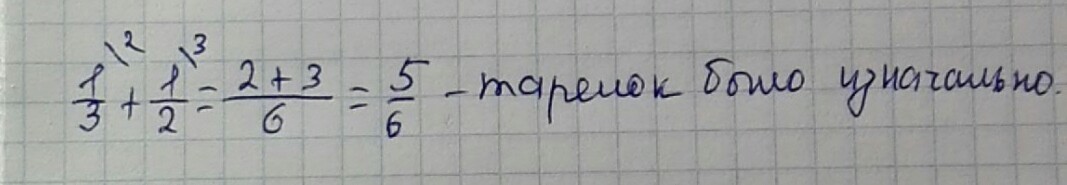 1/3\2 + 1/2\3 = (2 + 3)/6 = 5/6 – тарелок было изначально.